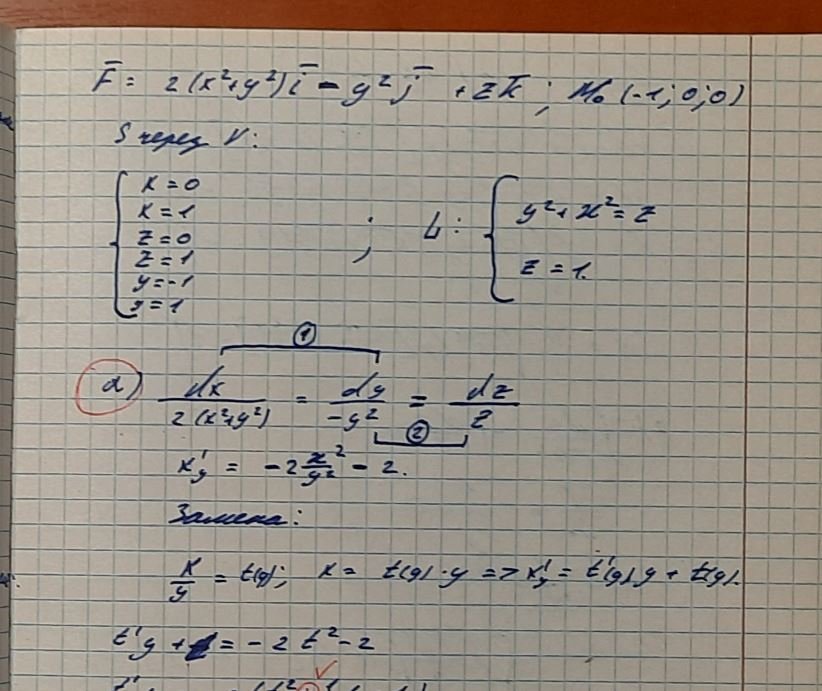 F̄ = 2(x²+y²)ī - y²j̄ + zk̄; M₀(-1; 0; 0)
S через V:
x = 0
x = 1
z = 0
z = 1
y = -1
y = 1
; L: y² + x² = z
z = 1.
①
а) dx / 2(x²+y²) = dy / -y² = dz / z
②
x'y = -2 x²/y² - 2.
Замена:
x/y = t(y); x = t(y)·y => x'y = t'(y)y + t(y).
t'y + t = -2t² - 2